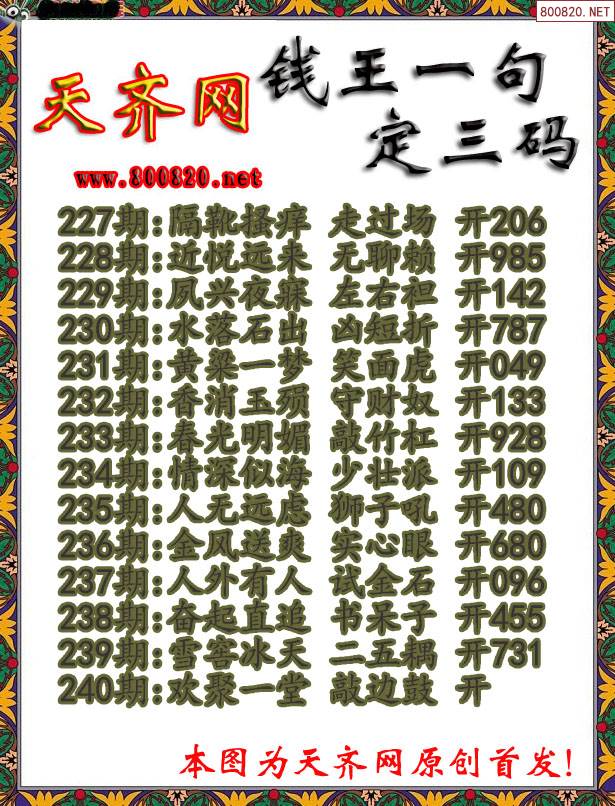 800820.NET
钱王一句
天齐网
定三码
www.800820.net
227期:隔靴搔痒 走过场 开206
228期:近悦远来 无聊赖 开985
229期:夙兴夜寐 左右袒 开142
230期:水落石出 凶短折 开787
231期:黄粱一梦 笑面虎 开049
232期:香消玉殒 守财奴 开133
233期:春光明媚 敲竹杠 开928
234期:情深似海 少壮派 开109
235期:人无远虑 狮子吼 开480
236期:金风送爽 实心眼 开680
237期:人外有人 试金石 开096
238期:奋起直追 书呆子 开455
239期:雪窖冰天 二五耦 开731
240期:欢聚一堂 敲边鼓 开
本图为天齐网原创首发!